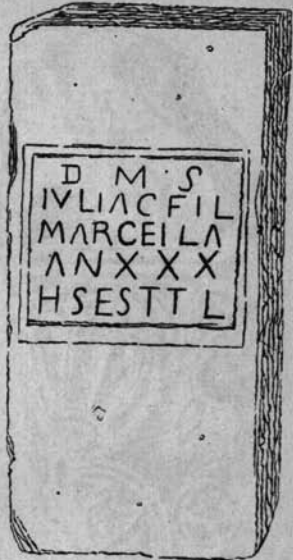 D M S
IVLIACFIL
MARCEILA
ANXXX
HSESTTL